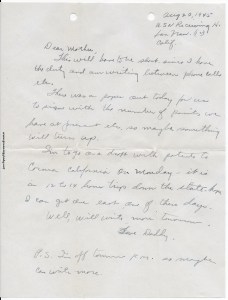 Aug 22, 1945
U.S.N. Receiving H.
San Fran (4)
Calif
Dear Mother,
This will have to be short since I have
the duty and am writing between phone calls
etc.
There was a paper out today for us
to sign with the number of points we
have at present etc. so maybe something
will turn up.
I'm to go on a draft with patients to
Corona California on Monday - it is
a 10 to 12 hour trip down the state. Hope
I can get one east one of these days.
Well, will write more tomorrow.
Love
P.S. I'm off tomorrow p.m. so maybe
can write more